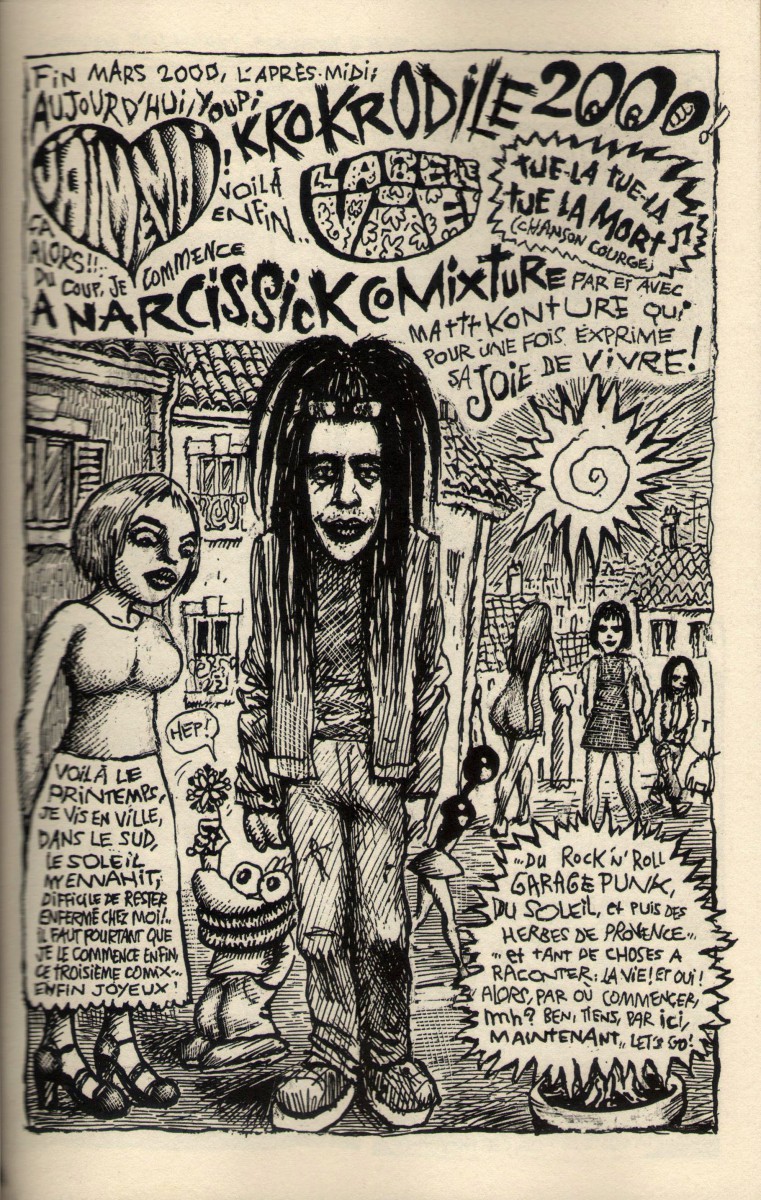 FIN MARS 2000, L'APRÈS-MIDI;
AUJOURD'HUI, YOUPI
! KROKRODILE 2000
VOILÀ
ENFIN..
LA BÊTE
TUE-LA TUE-LA
TUE LA MORT ♫
(CHANSON COURGE)
ÇA
ALORS!!.
DU COUP, JE COMMENCE
À NARCISSICK COMIXTURE PAR ET AVEC
MATTT KONTURE QUI
POUR UNE FOIS EXPRIME
SA JOIE DE VIVRE!
HEP!
VOILÀ LE
PRINTEMPS,
JE VIS EN VILLE,
DANS LE SUD,
LE SOLEIL
M'Y ENVAHIT;
DIFFICILE DE RESTER
ENFERMÉ CHEZ MOI!..
IL FAUT POURTANT QUE
JE LE COMMENCE ENFIN,
CE TROISIÈME COMIX...
ENFIN JOYEUX!
...DU ROCK'N'ROLL
GARAGE PUNK,
DU SOLEIL, ET PUIS DES
HERBES DE PROVENCE...
.. ET TANT DE CHOSES À
RACONTER: LA VIE! ET OUI!
ALORS, PAR OÙ COMMENCER,
MMH? BEN, TIENS, PAR ICI,
MAINTENANT.. LET'S GO!